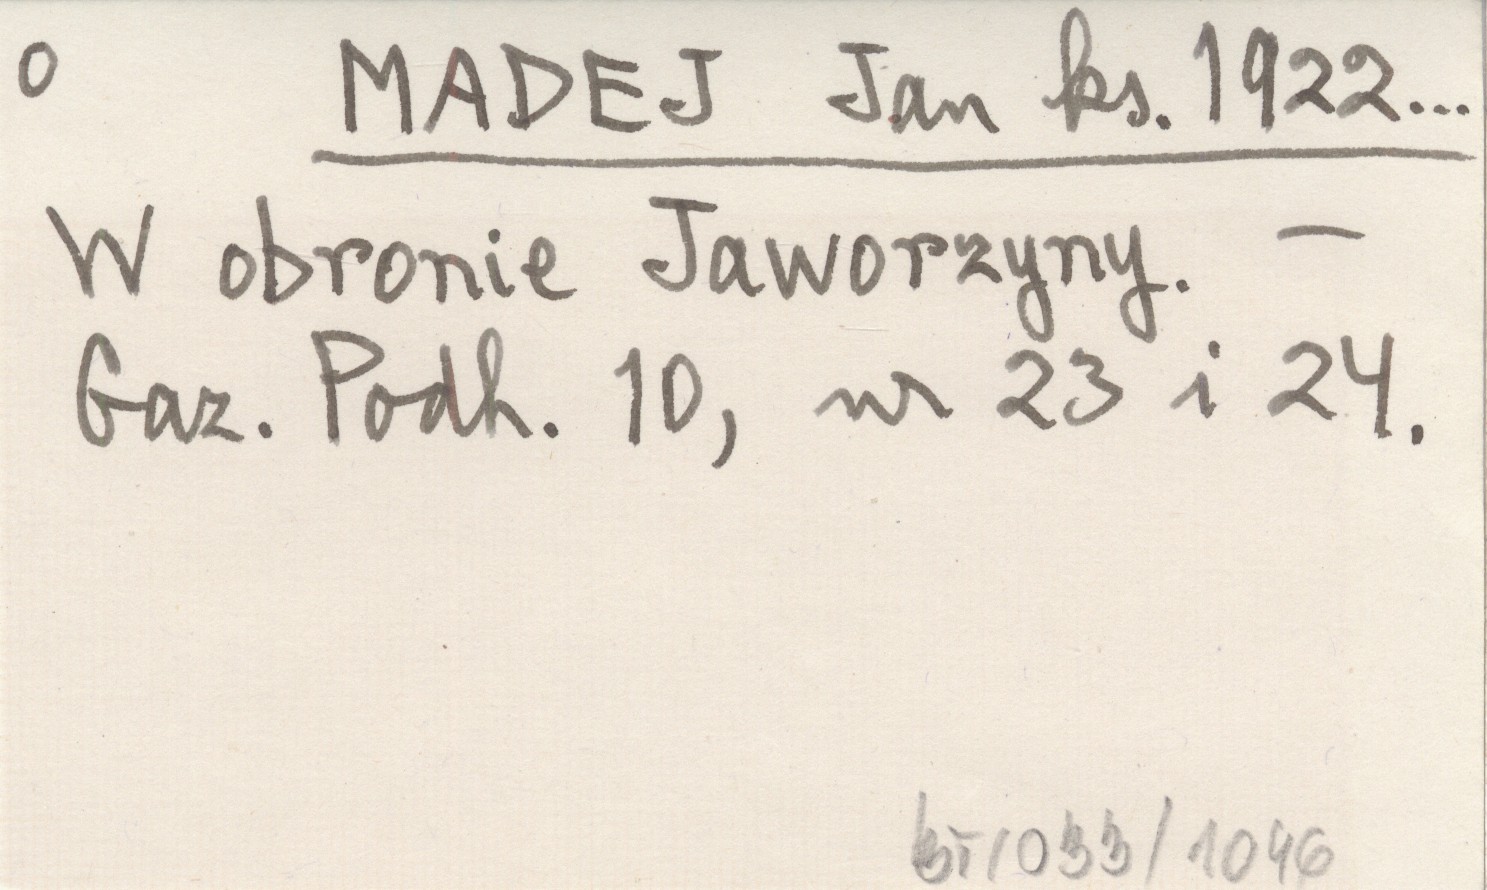 o MADEJ Jan ks. 1922...
W obronie Jaworzyny. —
Gaz. Podh. 10, nr 23 i 24.
/033/1046